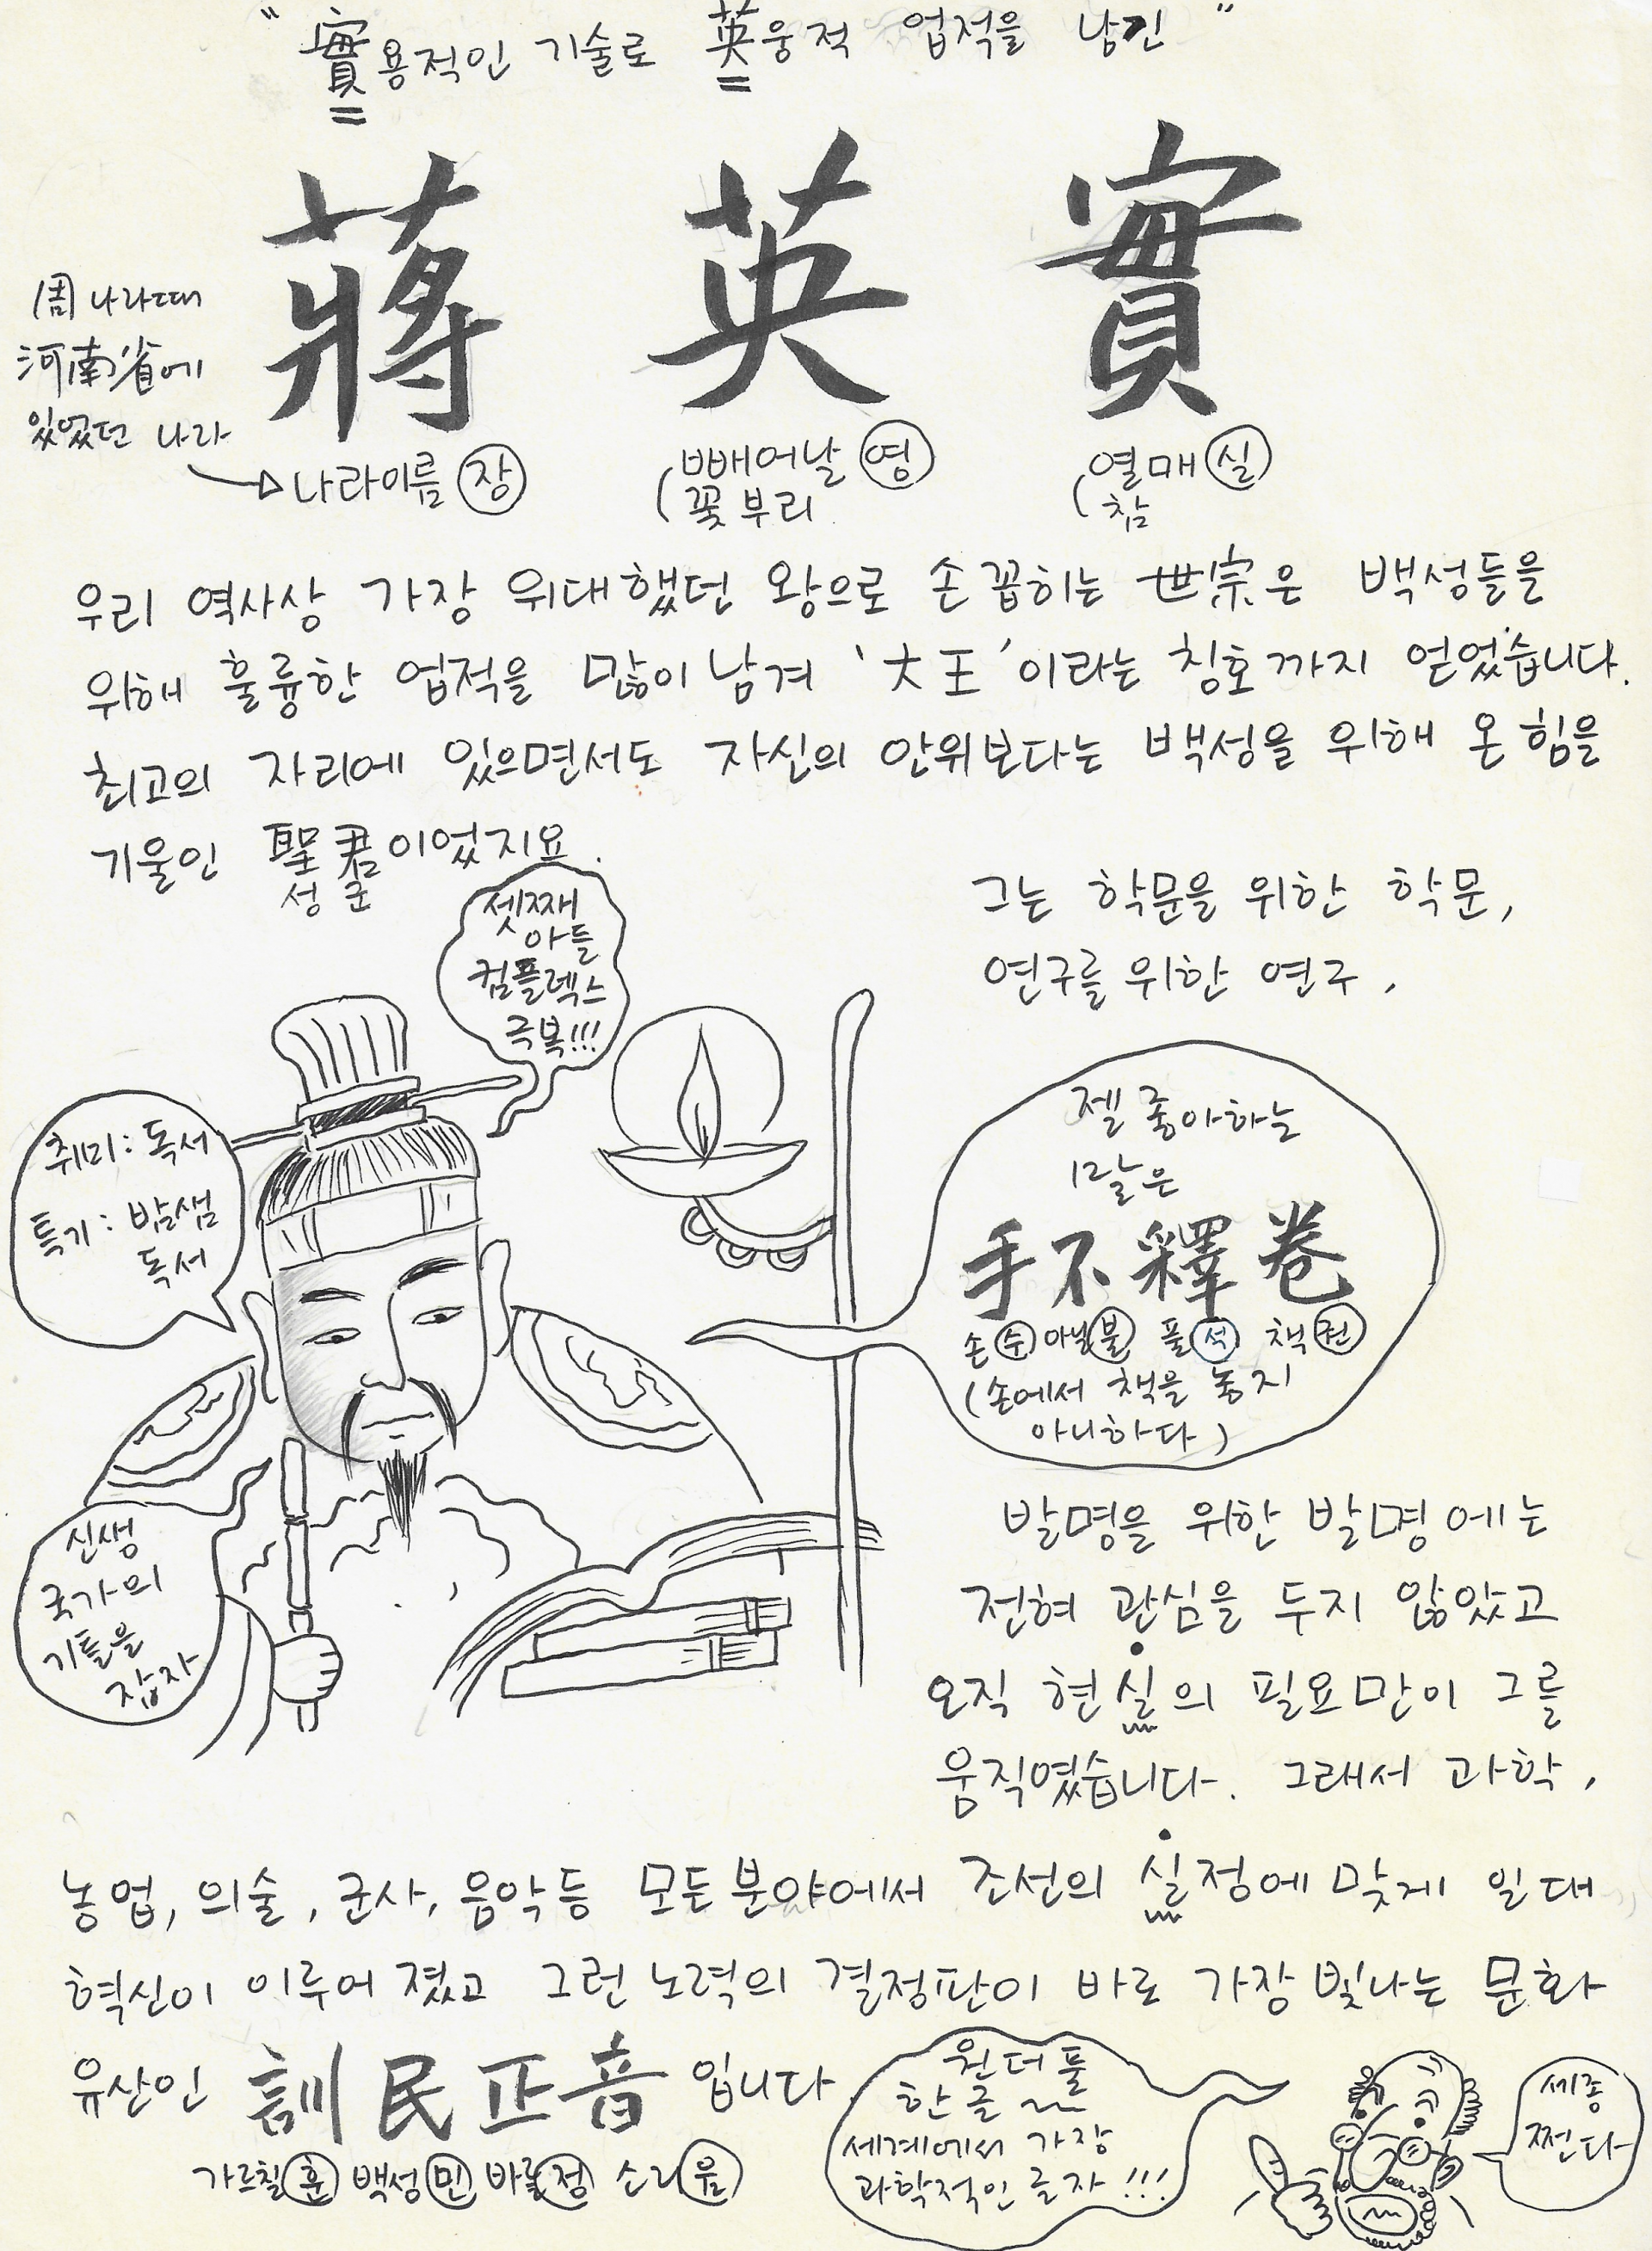 "實용적인 기술로 英웅적 업적을 남긴"
蔣 英 實
周나라때
河南省에
있었던 나라
나라이름 장
(빼어날 영
꽃부리
(열매 실
참
우리 역사상 가장 위대했던 왕으로 손꼽히는 世宗은 백성들을
위해 훌륭한 업적을 많이 남겨 '大王'이라는 칭호까지 얻었습니다.
최고의 자리에 있으면서도 자신의 안위보다는 백성을 위해 온 힘을
기울인 聖君이었지요.
성군
그는 학문을 위한 학문,
연구를 위한 연구,
셋째
아들
컴플렉스
극복!!!
취미: 독서
특기: 밤샘
독서
젤 좋아하는
말은
手不釋卷
손 수 아닐 불 풀 석 책 권
(손에서 책을 놓지
아니하다)
신생
국가의
기틀을
잡자
발명을 위한 발명에는
전혀 관심을 두지 않았고
오직 현실의 필요만이 그를
움직였습니다. 그래서 과학,
농업, 의술, 군사, 음악등 모든분야에서 조선의 실정에 맞게 일대
혁신이 이루어 졌고 그런 노력의 결정판이 바로 가장 빛나는 문화
유산인 訓民正音 입니다.
가르칠 훈 백성 민 바를 정 소리 음
원더풀
한글~~
세계에서 가장
과학적인 글자!!!
세종
쩐다